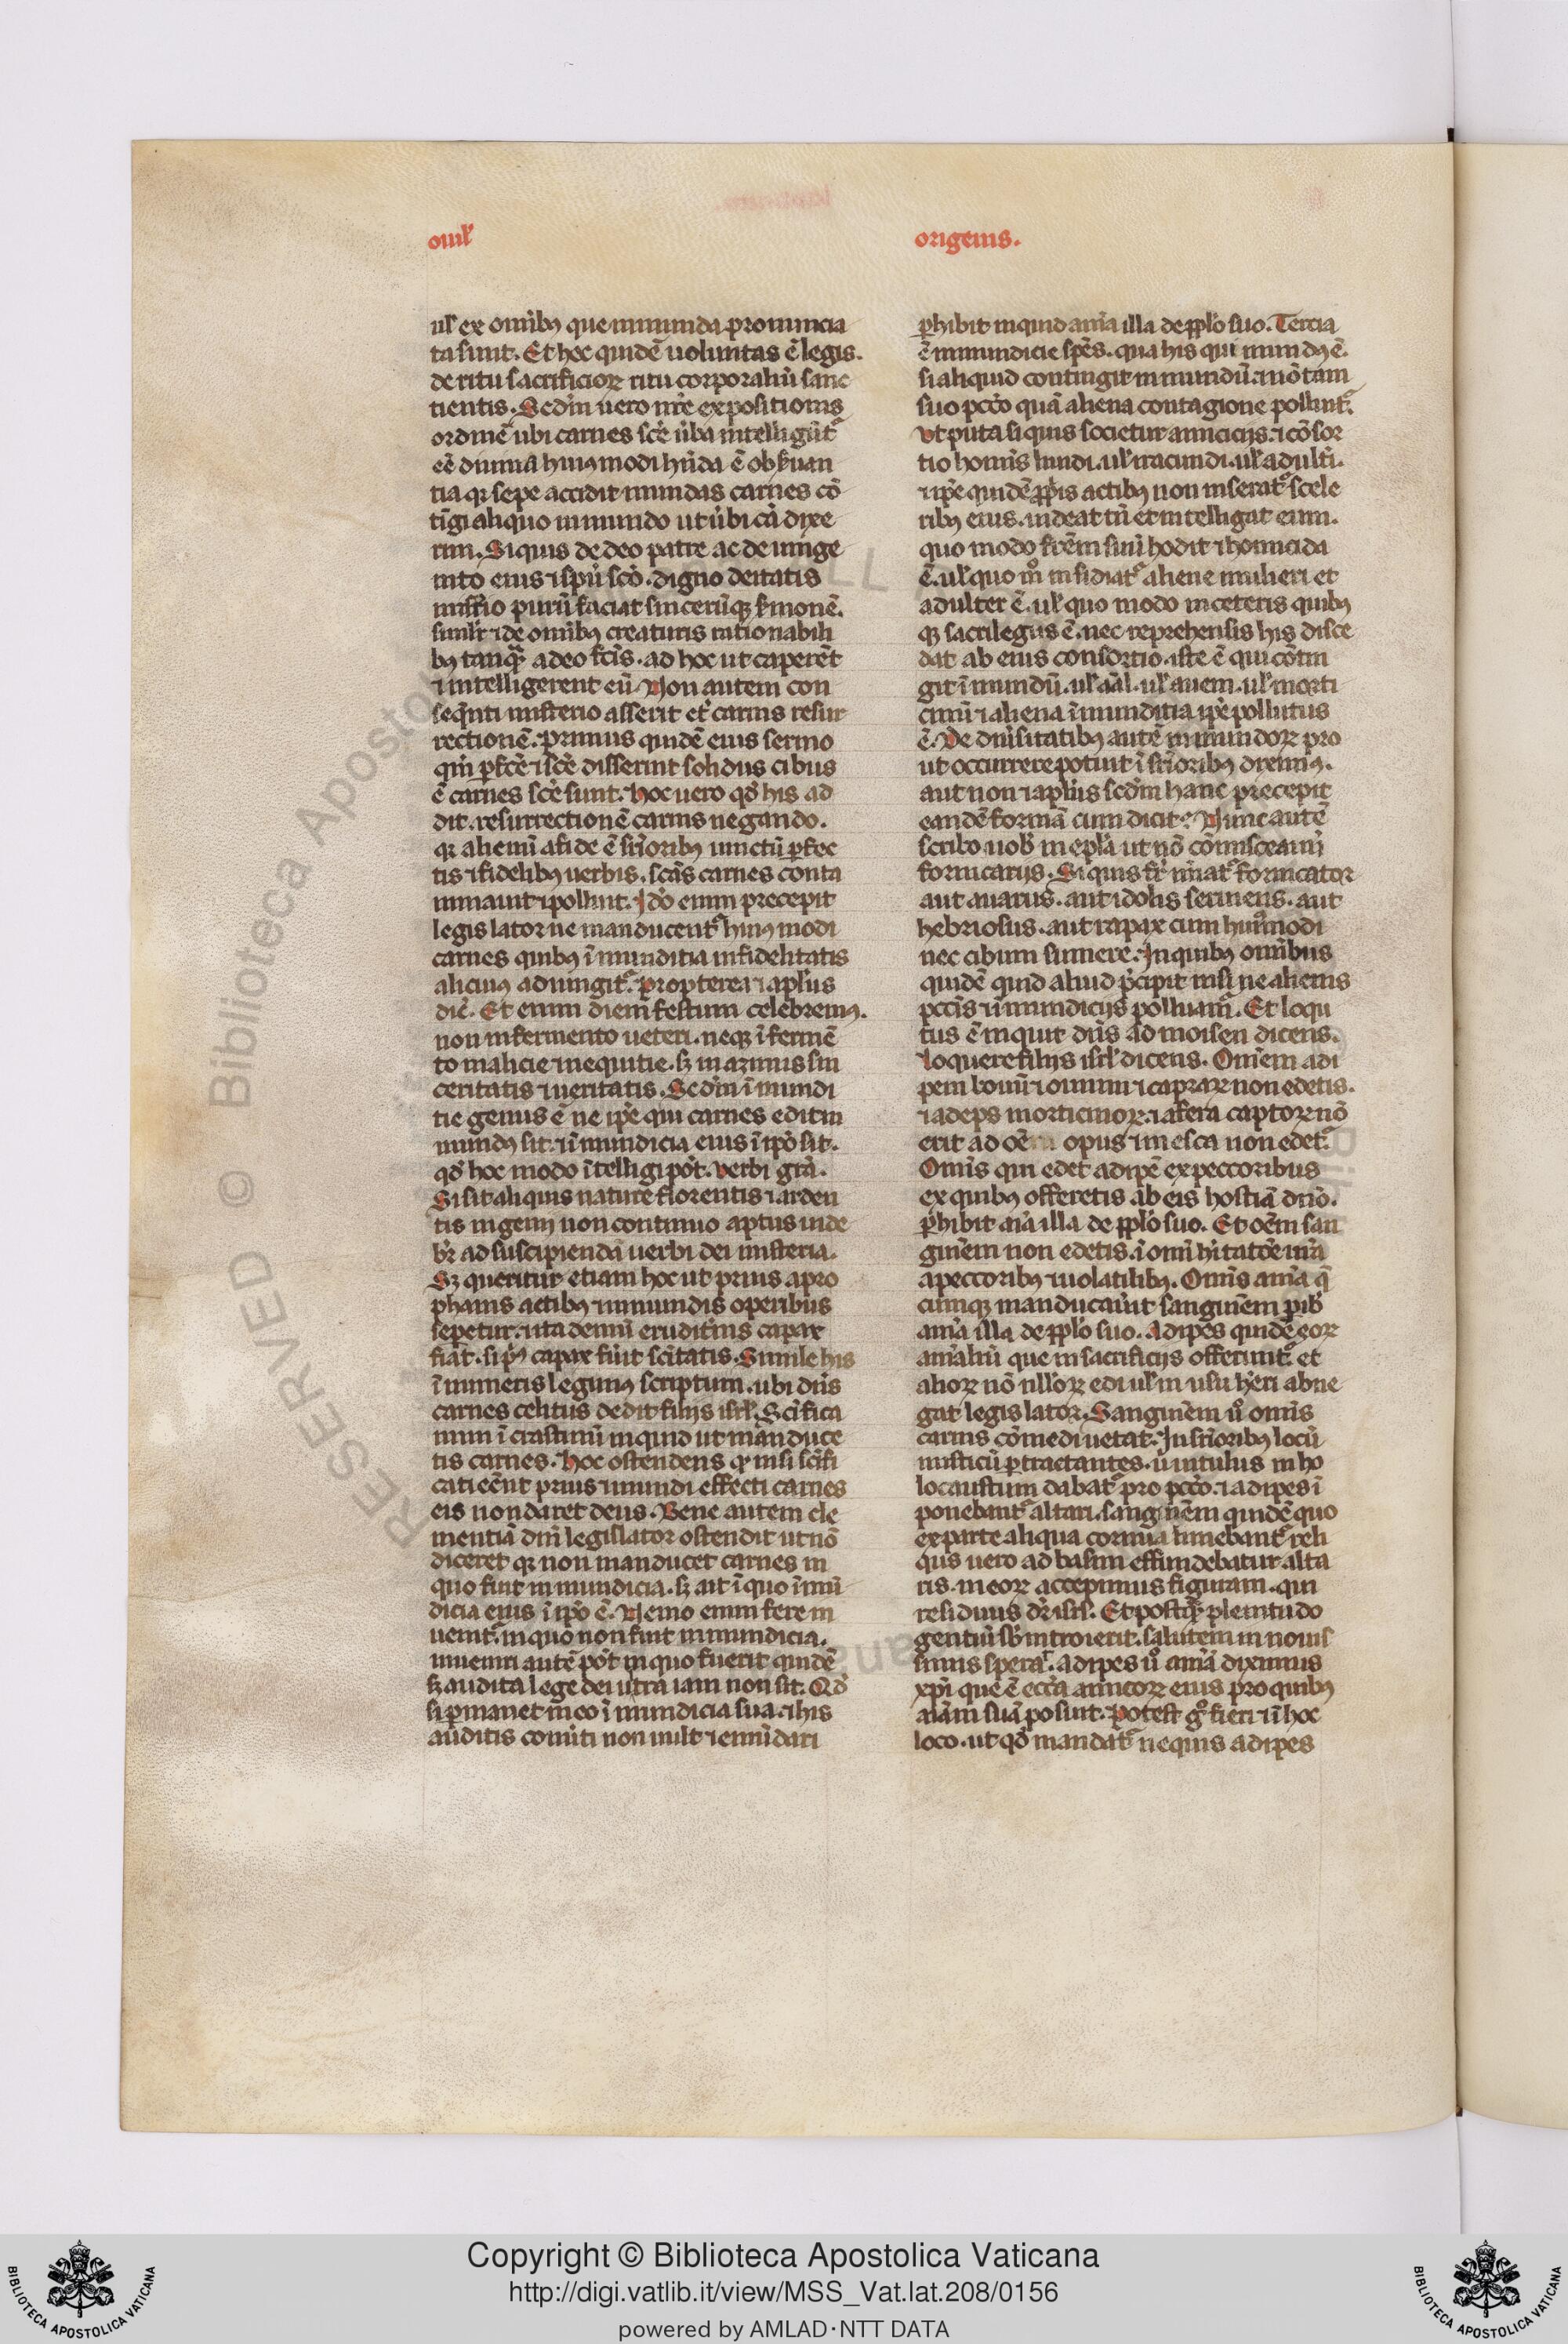 omĺ
origenis.
uł ex omĩbꝰ que inmunda pronuncia
ta sunt. Et hoc quidẽ uoluntas ẽ legis.
de ritu sacrificioꝝ ritu corporaliũ sanc
tientis. Scđm uero nr̃e expositionis
ordinẽ ubi carnes sc̃e ũba intelligũt᷑
eẽ diuina huiꝰmodi hñda ẽ obẜuan
tia qꝛ sepe accidit mundas carnes cõ
tĩgi aliquo inmundo ut ũbi cã dixe
rim. Si quis de deo patre ac de unige
nito eius ⁊ spũ sc̃o. digno deitatis
misťio purũ faciat sincerũqꝫ ẜmonẽ.
similr̃ ⁊ de omĩbꝰ creaturis rationabili
bꝰ tanqꝫ a deo fc̃is. ad hoc ut caperẽt
⁊ intelligerent eũ. Non autem con
seq̃nti misterio asserit et᷑ carnis resur
rectionẽ. primus quidẽ eius sermo
qm̃ ꝑfc̃e ⁊ sc̃e disserint solidus cibus
ẽ carnes sc̃e sunt. hoc uero qđ his ad
dit. resurrectionẽ carnis negando.
qꝛ alienũ a fide ẽ sup̃ioribꝰ iunctũ ꝑfec
tis ⁊ fidelibꝰ uerbis. sc̃as carnes conta
minauit ⁊ polluit. Iđo enim precepit
legis lator ne manducent᷑ huiꝰmodi
carnes quibꝰ ĩmunditia infidelitatis
alicuiꝰ adiungit᷑. propterea ⁊ apłus
dic̃. Et enim diem festum celebremꝰ.
non in fermento ueteri. neqꝫ ĩ fermẽ
to malicie ⁊ nequitie. sꝫ in azimis sin
ceritatis ⁊ ueritatis. Scđm ĩmundi
tie genus ẽ ne ip̃e qui carnes edit in
mundꝰ sit. ⁊ ĩmundicia eius ĩ ip̃o sit.
qđ hoc modo ĩtelligi põt. verbi grã.
Si sit aliquis nature florentis ⁊ arden
tis ingenij non continuo aptus uide
bit᷑ ad suscipienda uerbi dei misteria.
Sꝫ queritur etiam hoc ut prius a pro
phanis actibꝰ ⁊ inmundis operibus
sepetur. ⁊ ita demũ eruditiõis capax
fiat. si pꝰ capax fũit sc̃itatis. Simile his
ĩ numeris legimꝰ scriptum. ubi dñs
carnes celitus dedit filijs isrł. Sc̃ifica
mini ĩ crastinũ inquid ut manduce
tis carnes. hoc ostendens qꝛ nisi sc̃ifi
cati eẽnt prius ⁊ mundi effecti carnes
eis non daret deus. Bene autem cle
mentiã dñi legislator ostendit ut nõ
diceret qꝛ non manducet carnes in
quo fuit inmundicia. sꝫ ait ĩ quo ĩmũ
dicia eius ĩ ip̃o ẽ. Nemo enim fere in
uenit᷑ in quo non fuit inmundicia.
inueniri autẽ põt in quo fuerit quidẽ
sꝫ audita lege dei ultra iam non sit. Qđ
si ꝑmanet in eo ĩmundicia sua. ⁊ his
auditis conũti non uult ⁊ emũdari
ꝑhibit inquid anĩa illa de pplo suo. Tercia
ẽ inmundicie spẽs. qua his qui mundꝰ ẽ.
si aliquid contingit inmundũ. ⁊ nõ tam
suo pcc̃o quã aliena contagione polluit᷑.
vt puta si quis societur amicicijs. ⁊ cõsor
tio homĩs inuidi. uł iracundi. uł adulťi.
⁊ ip̃e quidẽ ꝓprijs actibꝰ non inserat᷑ scele
ribꝰ eius. uideat tñ et intelligat eum.
quo modo fr̃em suũ hodit ⁊ homicida
ẽ. uł quo mᵒ insidiat᷑ aliene mulieri et
adulter ẽ. uł quo modo in ceteris quibꝰ
qꝫ sacrilegus ẽ. nec reprehensis his disce
dat ab eius consortio. iste ẽ qui cõtin
git ĩmundũ. uł aĩal. uł auem. uł morti
cinũ ⁊ aliena ĩmunditia ip̃e pollutus
ẽ. De diuʼsitatibꝰ autẽ inmundoꝝ pro
ut occurrere potuit ĩ sup̃ioribꝰ diximꝰ.
aut non ⁊ apłus scđm hanc precepit
eandẽ formã cum dicit. Nunc autẽ
scribo uobʼ in epła ut nõ cõmisceamĩ
fornicarijs. Si quis fr̃ nĩat᷑ fornicator
aut auarus. aut idolis seruiens. aut
hebriosus. aut rapax cum huiᵒmodi
nec cibum sumere. In quibꝰ omĩbus
quidẽ quid aliud p̃cipit nisi ne alienis
pcc̃is ⁊ ĩmundicijs polluam᷑. Et loqu
tus ẽ inquit dñs ad moisen dicens.
loquere filijs isrł dicens. Omẽm adi
pem bouũ ⁊ ouium ⁊ capraꝝ non edetis.
⁊ adeps morticinoꝝ. ⁊ a fera captoꝝ nõ
erit ad oẽ opus ⁊ in esca non edet᷑.
Omĩs qui edet adipẽ ex peccoribus
ex quibꝰ offeretis ab eis hostiã dño.
ꝑhibit aĩa illa de pplo suo. Et oẽm san
guinẽm non edetis. ĩ omĩ hĩtatõe uñ̃a
a peccoribꝰ ⁊ uolatilibꝰ. Omĩs anĩa q̃
cumqꝫ manducauit sanguinẽm ꝑibʼ
anĩa illa de pplo suo. Adipes quidẽ eoꝝ
anĩaliũ que in sacrificijs offerunt᷑. et
alioꝝ nõ illoꝝ edi uł in usu hʼeri abne
gat legis lator. Sanguinẽm uᵒ omĩs
carnis cõmedi uetat. In sup̃ioribꝰ locũ
misticũ ꝑtractantes. ũ uitulus in ho
locaustum dabat᷑ pro pcc̃o. ⁊ adipes ĩ
ponebant᷑ altari. sanguinẽm quidẽ quo
ex parte aliqua cornua linebant᷑. reli
qus uero ad basim effundebatur. alta
ris. in eoꝝ accepimus figuram. qui
residuus dr̃ isrł. Et postqꝫ plenitudo
gentiũ sb̃introierit. salutem in nouis
simis sperat᷑. adipes uᵒ anĩã diximus
xp̃i que ẽ ecc̃a amicoꝝ eius pro quibꝰ
aĩam suã posuit. Potest gᵒ fieri ⁊ ĩ hoc
loco. ut qđ mandat᷑ ne quis adipes
Copyright © Biblioteca Apostolica Vaticana
http://digi.vatlib.it/view/MSS_Vat.lat.208/0156
powered by AMLAD·NTT DATA